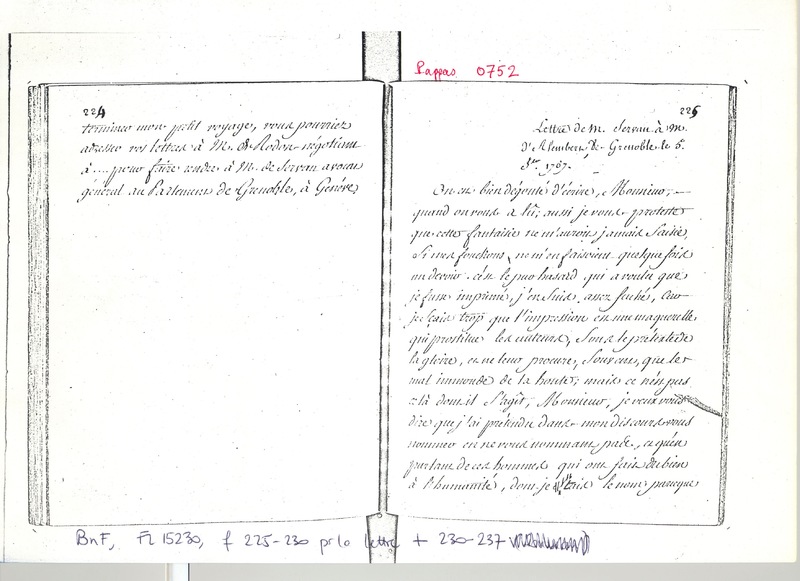 Pappas 0752
224
terminer mon petit voyage, vous pourriez
adresser vos lettres à M. de Rodon négotiant
à .... pour faire rendre à M. de Servan avocat
général au Parlement de Grenoble, à Genève,
225
Lettre de M. Servan à M.
D'Alembert, de Grenoble le 5.
1767.
On est bien dégouté d'écrire, Monsieur, —
quand on vous a lû; aussi je vous proteste
que cette fantaisie ne m'auroit jamais saisie,
Si mes fonctions, ne m'en faisoient quelque fois
un devoir. c'est le pur hazard qui a voulu que
je fusse imprimé, j'en suis assez faché, Car
je sçais trop que l'impression est une maquerelle
qui prostitue les auteurs, sous le prétexte de
la gloire, et ne leur procure, souvent, que le
mal immonde de la honte; mais ce n'est pas
là dont il s'agit, Monsieur, je veux vous
dire que j'ai prétendu dans mon discours vous
nommer en ne vous nommant pas, et qu'en
parlant de ces hommes qui ont fait du bien
à l'humanité, dont je tais le nom parceque
BnF, Fr 15230, f 225-230 pr la lettre + 230-237